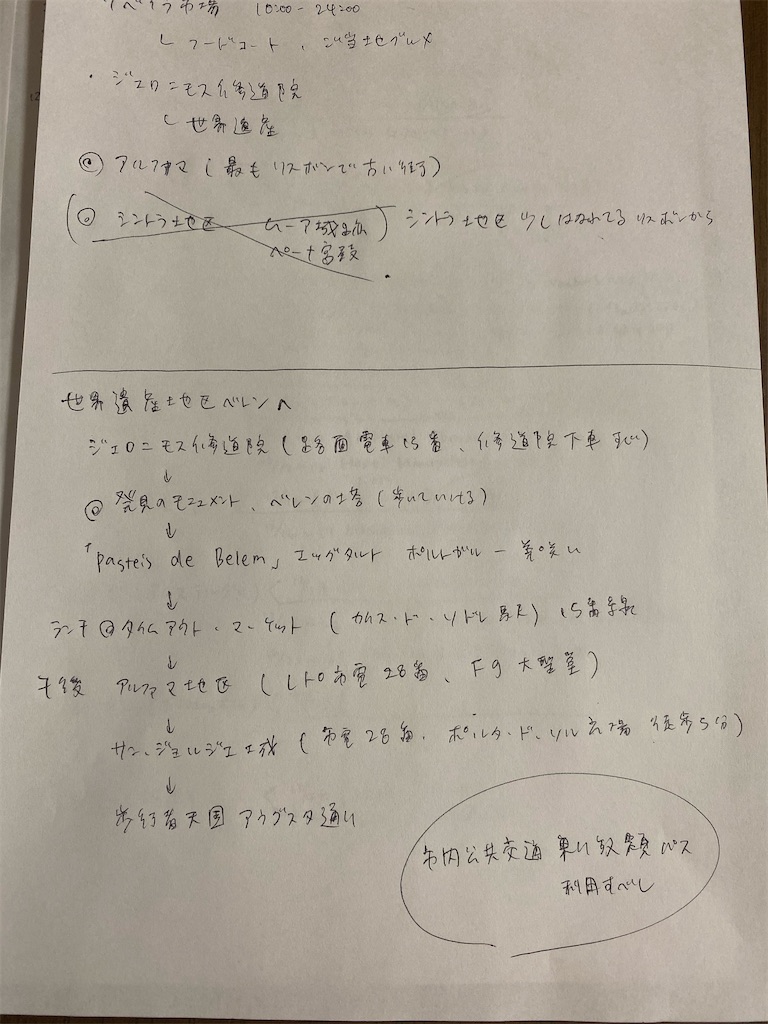 リベイラ市場 10:00-24:00
└ フードコート、ご当地グルメ
・ジェロニモス修道院
└ 世界遺産
◎ アルファマ (最もリスボンで古い街)
(◎ シントラ地区 ムーア城跡 ) シントラ地区 少しはなれてる リスボンから
ペーナ宮殿
世界遺産地区ベレンへ
ジェロニモス修道院 (路面電車15番、修道院下車すぐ)
↓
◎ 発見のモニュメント、ベレンの塔 (歩いていける)
↓
「Pasteis de Belem」エッグタルト ポルトガル一美味い
↓
ランチ @タイムアウト・マーケット (カイス・ド・ソドレ駅) 15番線
↓
午後 アルファマ地区 (レトロ市電28番、大聖堂)
↓
サン・ジョルジェ城 (市電28番、ポルタ・ド・ソル広場 徒歩5分)
↓
歩行者天国 アウグスタ通り
市内公共交通 乗り放題パス
利用すべし